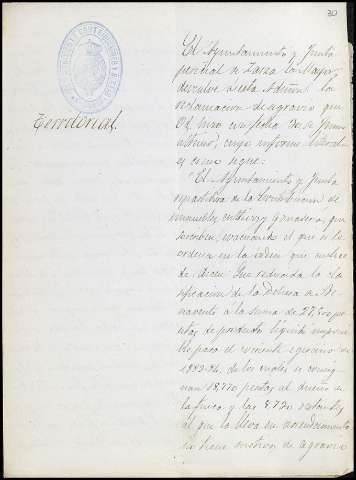 30
Territorial.
El Ayuntamiento y Junta
pericial de Zarza la Mayor,
devuelve á esta Admón. la
reclamacion de agravio que
Vd. hizo con fecha 30 de Junio
último, cuyo informe literal
es como sigue:
"El Ayuntamiento y Junta
repartidora de la Contribucion de
inmuebles, cultivo y ganaderia, que
suscriben, evacuando el que se le
ordena en la orden que antecede
dicen: Que reducida la cla-
sificacion de la Dehesa de Be-
navente á la suma de 27,500 pe-
setas de producto líquido imponi-
ble para el corriente egercicio de
1883-84, de los cuales se consig-
nan 18,770 pesetas al dueño de
la finca y las 8730 restantes
al que la lleva en arrendamiento
no tiene motivo de agravio